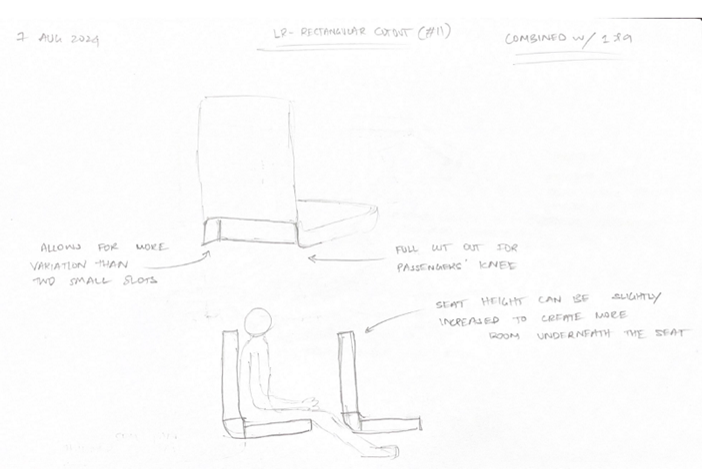 7 AUG 2024
LP- RECTANGULAR CUTOUT (#11)
COMBINED W/ 1 &9
ALLOWS FOR MORE
VARIATION THAN
TWO SMALL SLOTS
FULL CUT OUT FOR
PASSENGERS' KNEE
SEAT HEIGHT CAN BE SLIGHTLY
INCREASED TO CREATE MORE
ROOM UNDERNEATH THE SEAT